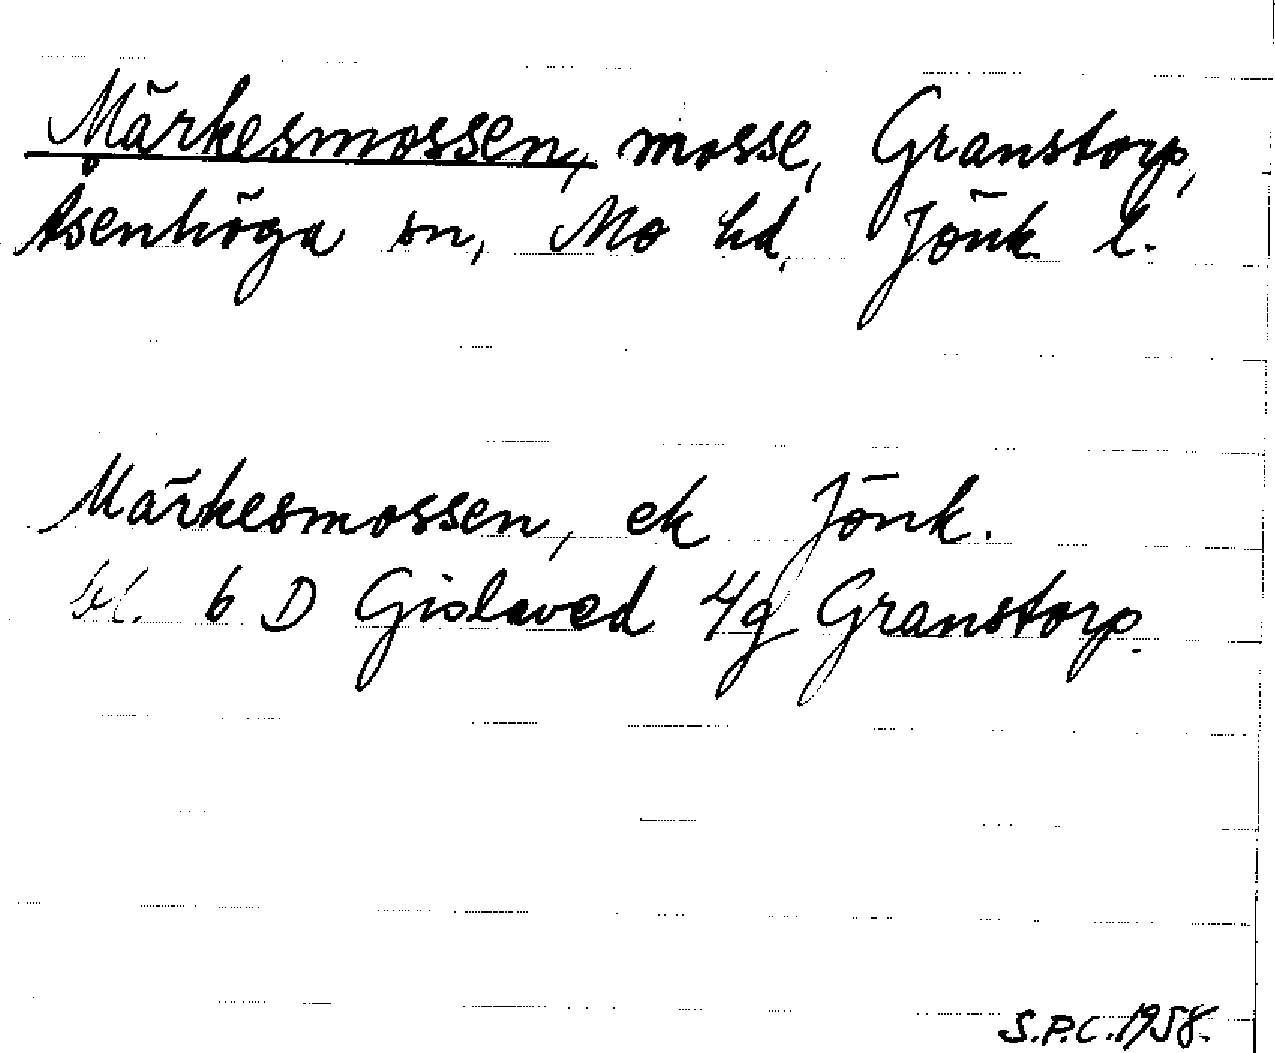 Märkesmossen, mosse, Granstorp,
Åsenhöga sn, Mo hd, Jönk. l.
Märkesmossen, ek Jönk.
bl. 6 D Gislaved 4g Granstorp.
S.P.C. 1958.